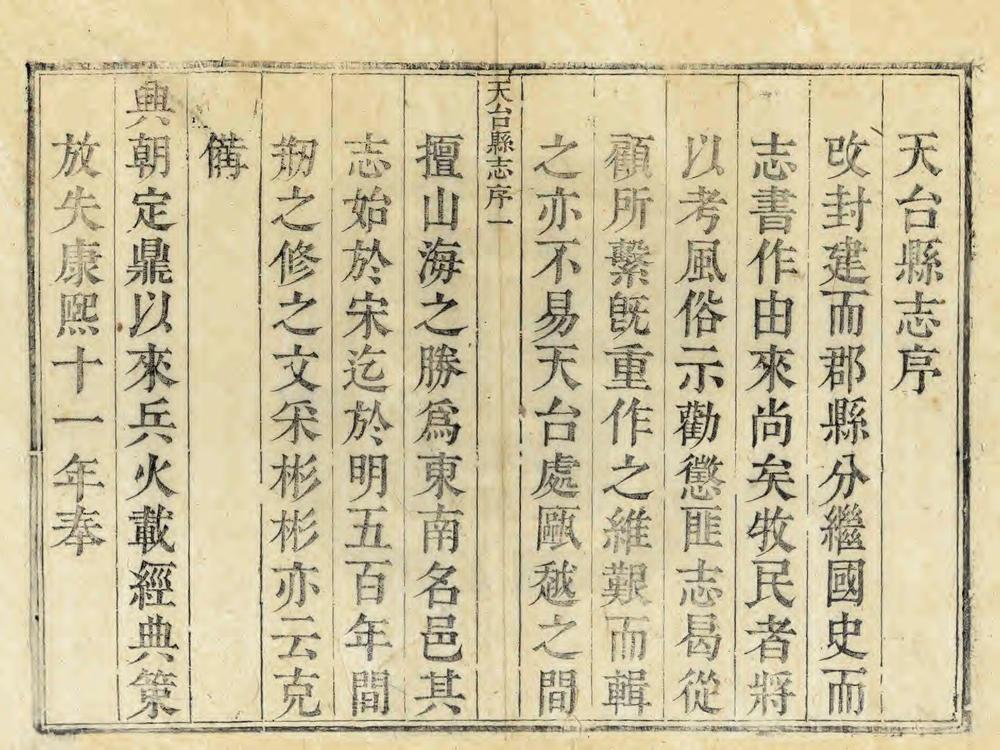 天台縣志序
攺封建而郡縣分繼國史而
志書作由來尚矣牧民者將
以考風俗示勸懲匪志曷從
顧所繫旣重作之維艱而輯
之亦不易天台處甌越之間
天台縣志序一
擅山海之勝爲東南名邑其
志始於宋迄於明五百年間
剙之修之文采彬彬亦云克
備
興朝定鼎以來兵火載經典策
放失康熙十一年奉